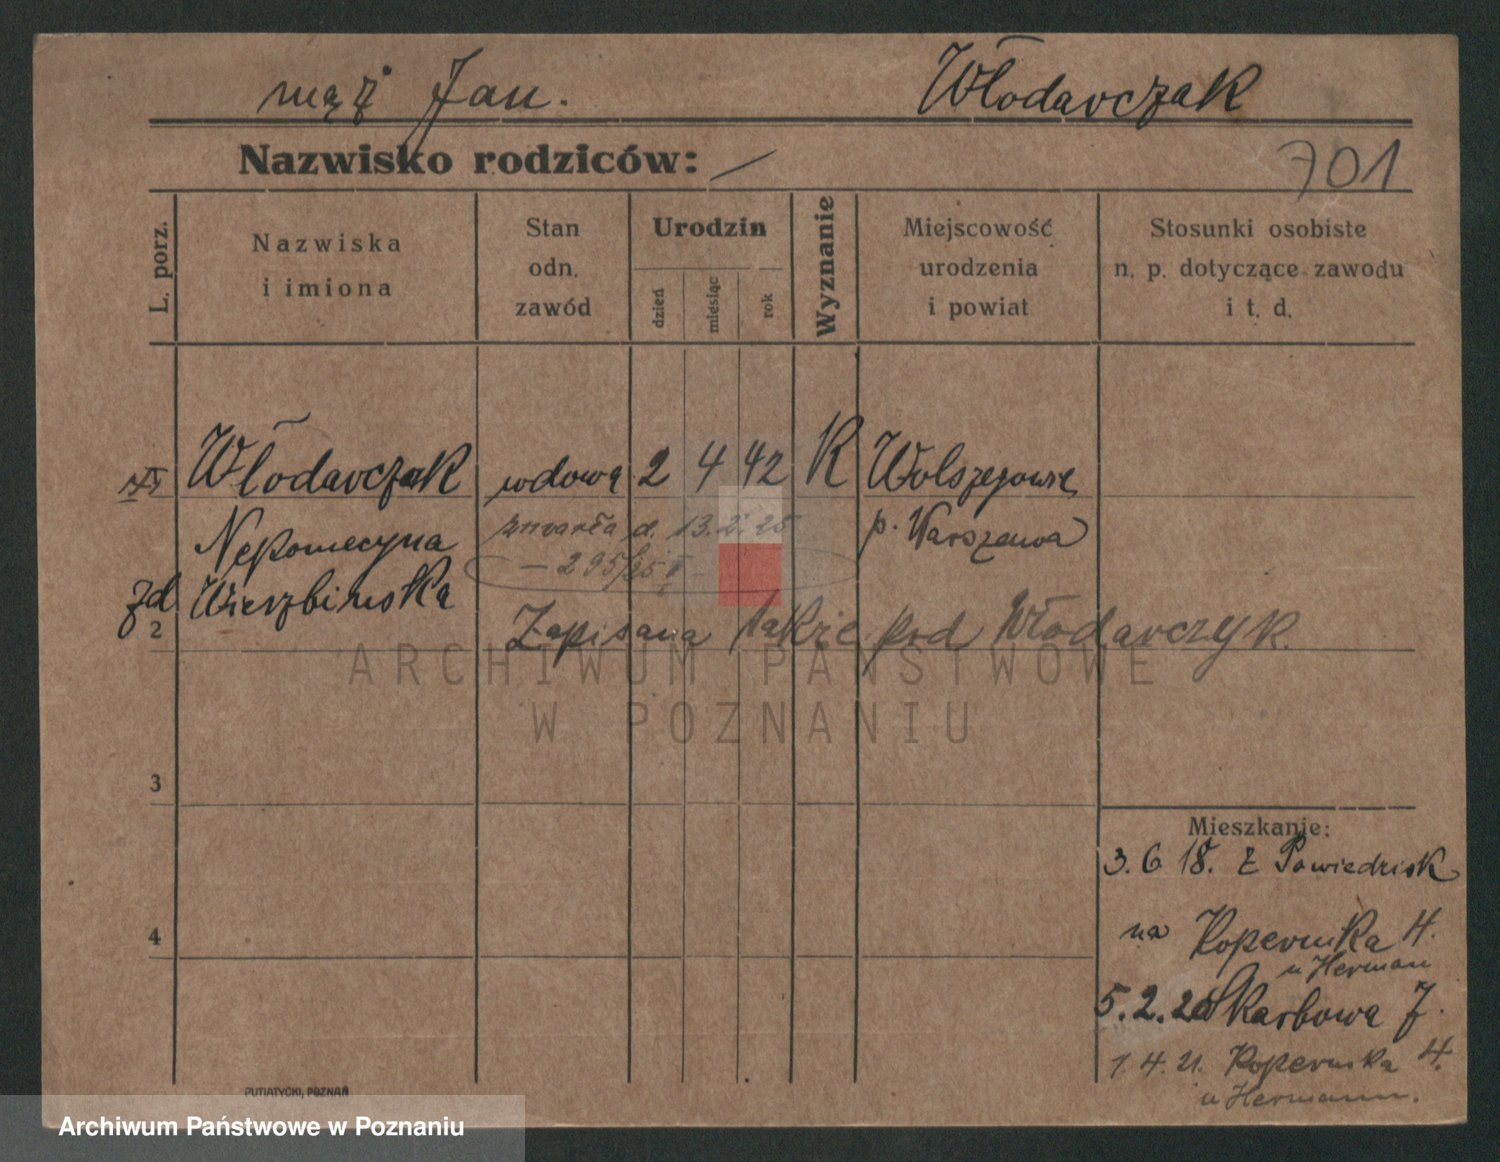 mąż Jan. Włodarczak
Nazwisko rodziców: —
701
L. porz.
Nazwiska
i imiona
Stan
odn.
zawód
Urodzin
dzień
miesiąc
rok
Wyznanie
Miejscowość
urodzenia
i powiat
Stosunki osobiste
n. p. dotyczące zawodu
i t. d.
Włodarczak wdowa 2 4 42 K
Nepomecyna
zmarła d. 13.2.25
p. Warszawa
— 295/25
zd Wierzbinska
2
Zapisana także pod Włodarczyk.
ARCHIWUM PAŃSTWOWE
W POZNANIU
3
Mieszkanie:
3. 6 18. z Powiedzisk
4
na Kopernika 4.
u Herman
5.2.20 Skarbowa 7.
1 4. 21. Kopernika 4.
u Hermann.
PUTIATYCKI, POZNAŃ
Archiwum Państwowe w Poznaniu